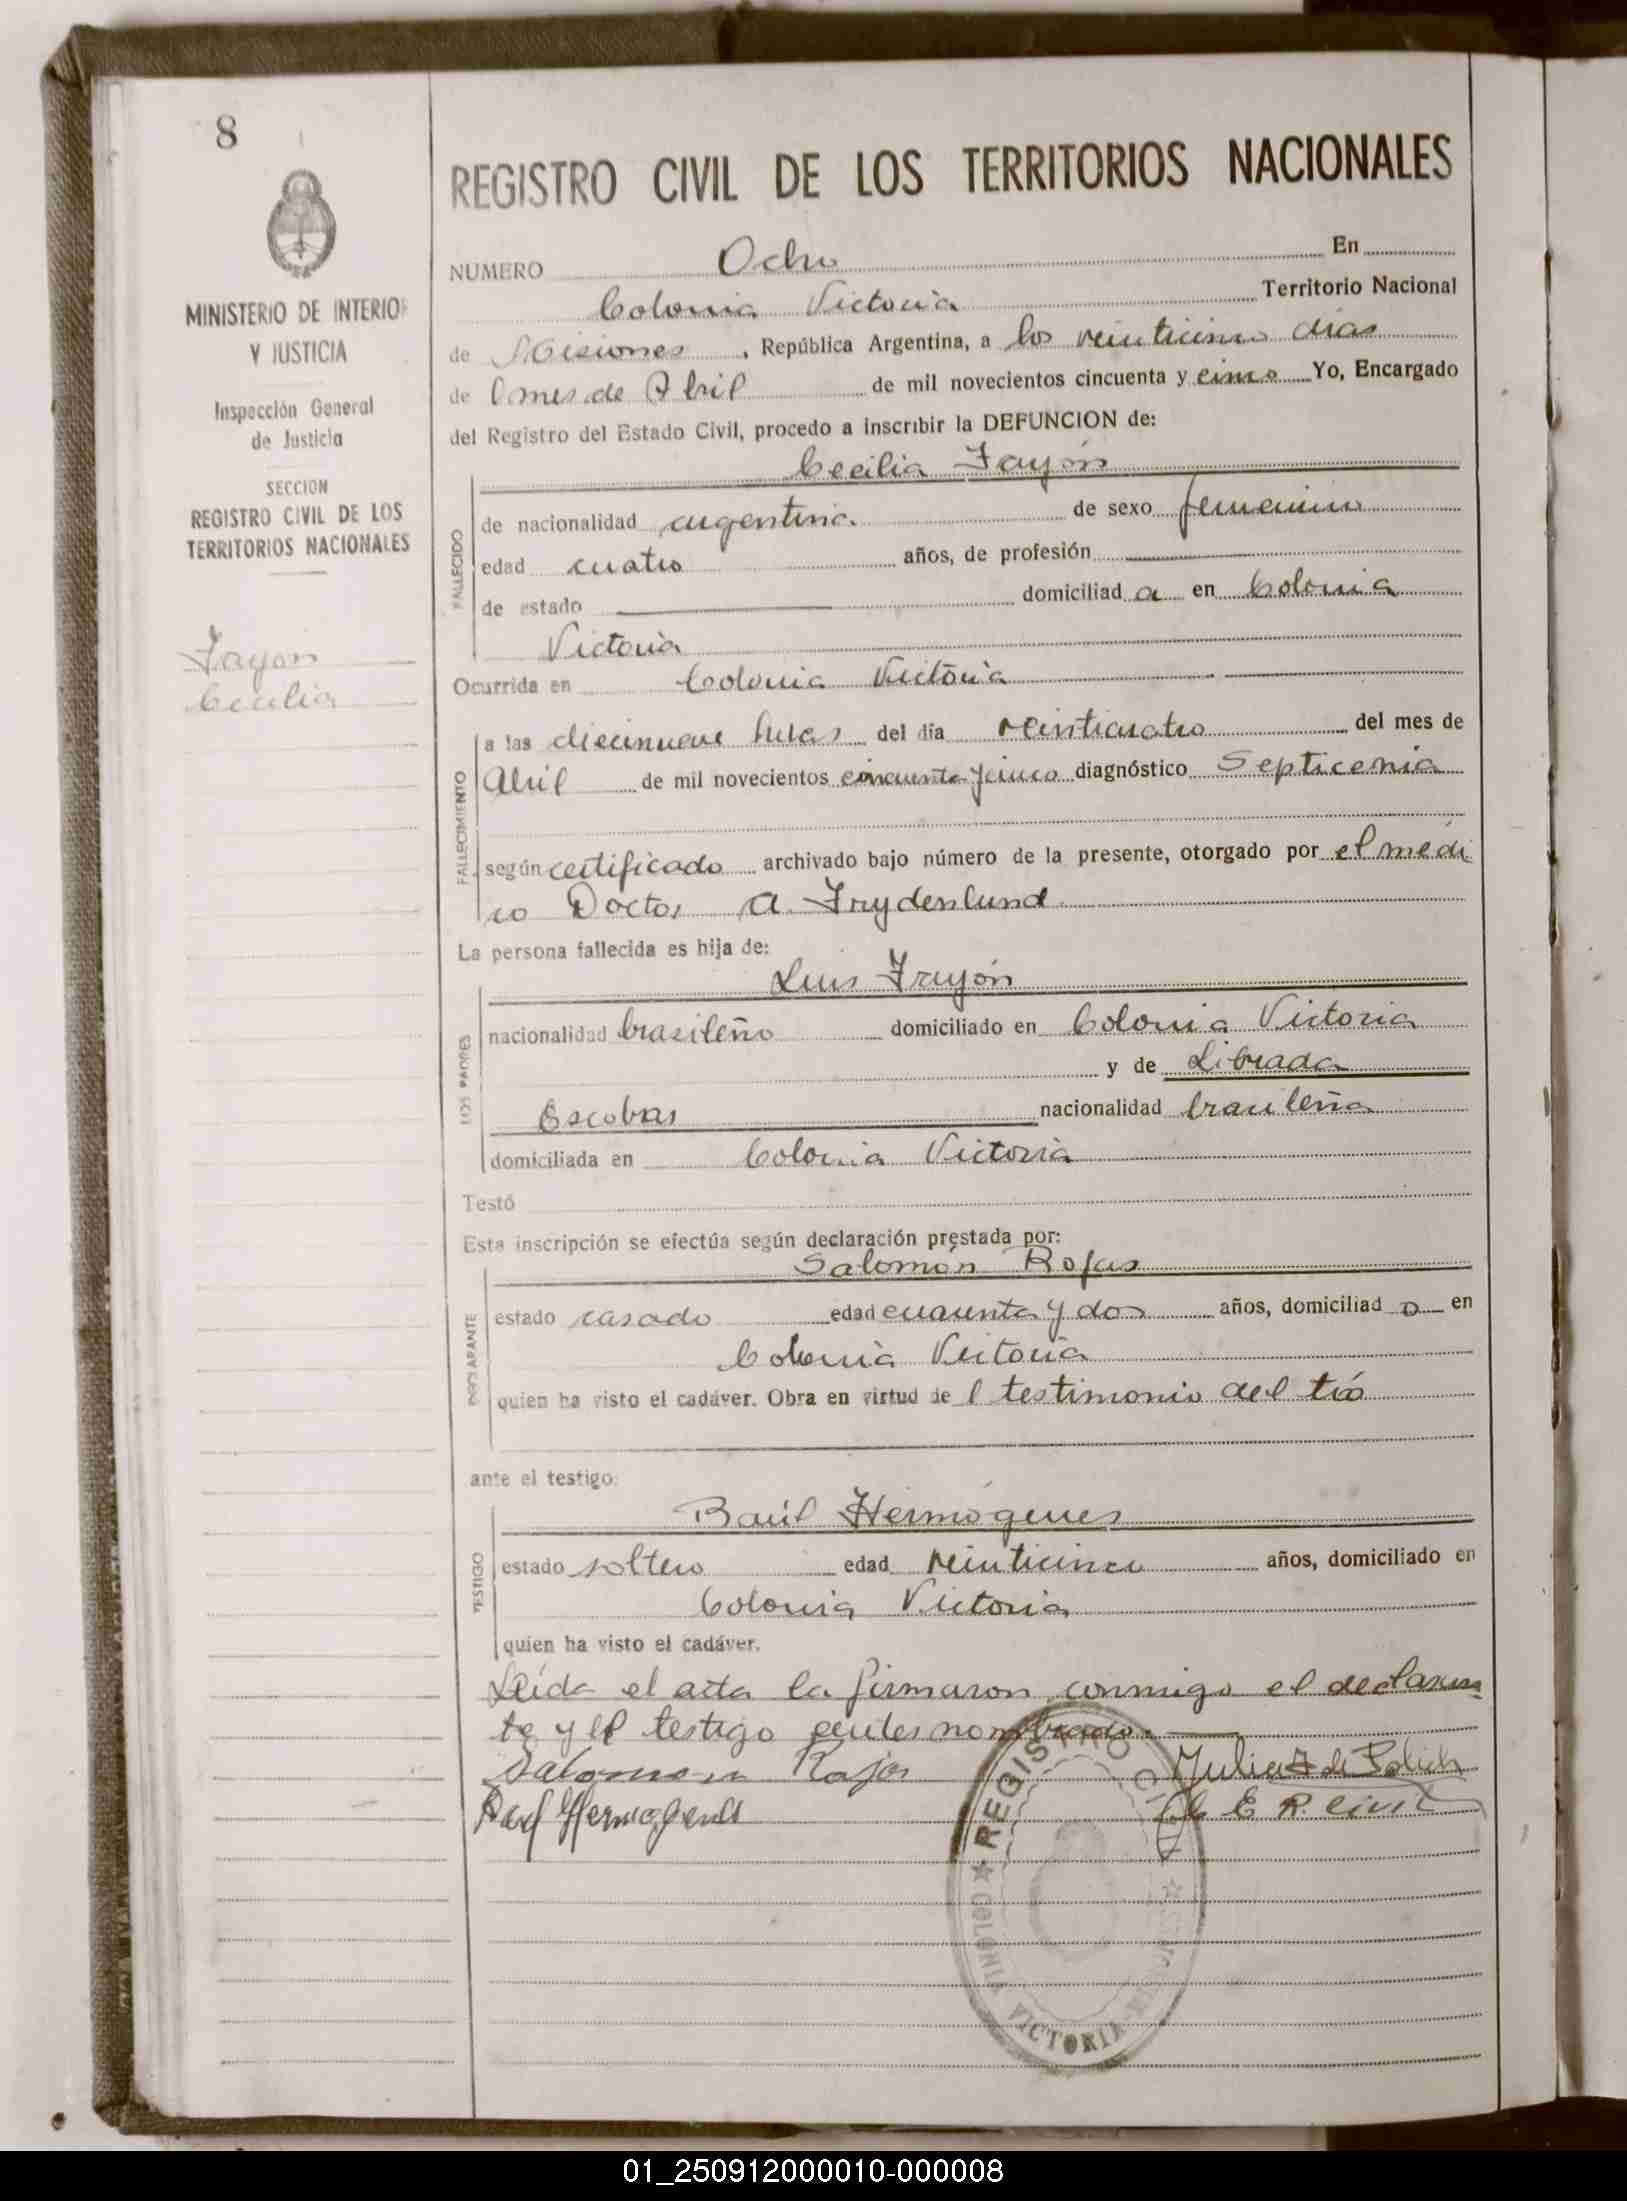 8
MINISTERIO DE INTERIOR
Y JUSTICIA
Inspección General
de Justicia
SECCION
REGISTRO CIVIL DE LOS
TERRITORIOS NACIONALES
Fayon
Cecilia
REGISTRO CIVIL DE LOS TERRITORIOS NACIONALES
NUMERO Ocho En
Colonia Victoria Territorio Nacional
de Misiones, República Argentina, a los veinticinco dias
de l mes de Abril de mil novecientos cincuenta y cinco Yo, Encargado
del Registro del Estado Civil, procedo a inscribir la DEFUNCION de:
Cecilia Fayón
FALLECIDO
de nacionalidad argentina de sexo femenino
edad cuatro años, de profesión
de estado domiciliad a en Colonia
Victoria
Ocurrida en Colonia Victoria
FALLECIMIENTO
a las diecinueve horas del día veinticuatro del mes de
Abril de mil novecientos cincuenta y cinco diagnóstico Septicemia
según certificado archivado bajo número de la presente, otorgado por el médi
co Doctor A. Frydenlund
La persona fallecida es hija de:
Luis Frayón
LOS PADRES
nacionalidad brasileño domiciliado en Colonia Victoria
y de Librada
Escobar nacionalidad brasileña
domiciliada en Colonia Victoria
Testó
Esta inscripción se efectúa según declaración prestada por:
Salomón Rojas
DECLARANTE
estado casado edad cuarenta y dos años, domiciliad o en
Colonia Victoria
quien ha visto el cadáver. Obra en virtud de l testimonio del tío
ante el testigo:
Raúl Hermógenes
TESTIGO
estado soltero edad veinticinco años, domiciliado en
Colonia Victoria
quien ha visto el cadáver.
Leída el acta la firmaron conmigo el declaran
te y el testigo nombrado.
Salomon Rojas Julia F de
Raul Hermogenes E. R. Civil
REGISTRO CIVIL
COLONIA VICTORIA - MISIONES
01_250912000010-000008